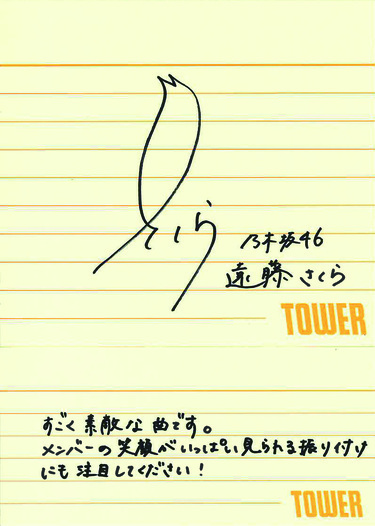 さくら
乃木坂46
遠藤さくら
TOWER
すごく素敵な曲です。
メンバーの笑顔がいっぱい見られる振り付け
にも注目してください!
TOWER